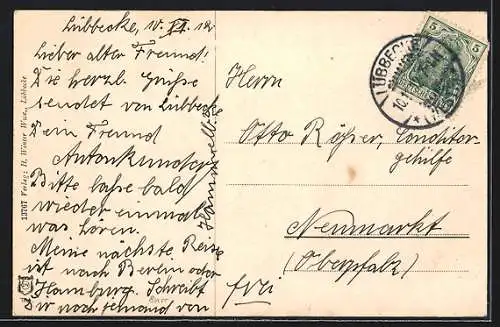 Lübbecke, 10. VI. 12.
Lieber alter Freund!
Die herzl. Grüße
sendet von Lübbecke
Dein Freund
Anton
Bitte lasse bald
wieder einmal
was hören.
Meine nächste Reise
ist nach Bremen oder
Hamburg. Schreibt
Dir noch jemand von
13767 Verlag: H. Wiener Wwe., Lübbecke
Herrn
Otto Rößer, Conditor-
gehilfe
Neumarkt
(Oberpfalz)
frei
LÜBBECKE
5 5